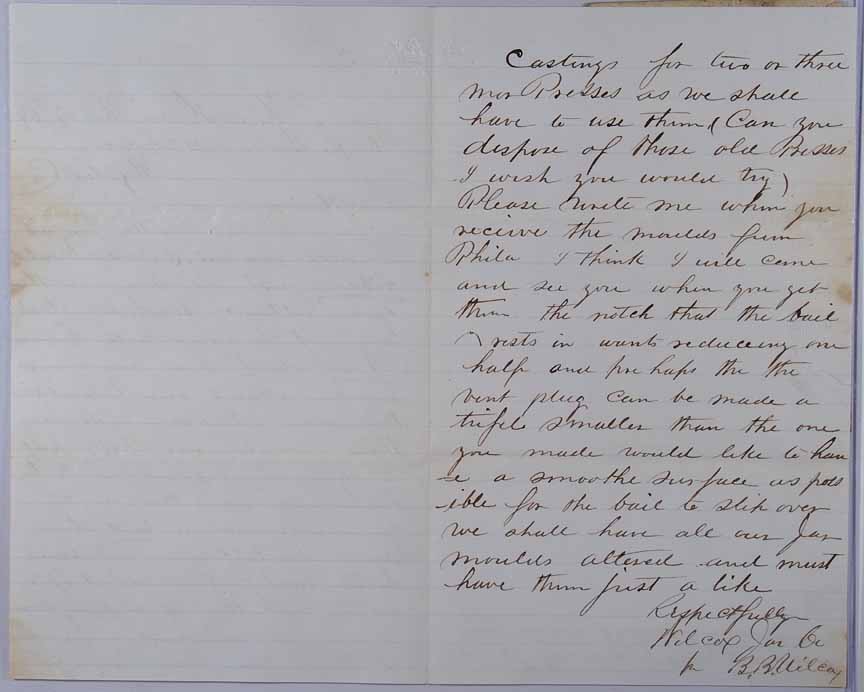 Castings for two or three
mor Presses as we shall
have to use them ( Can you
dispose of those old Presses
I wish you would try )
Please write me when you
receive the moulds from
Phila I think I will come
and see you when you get
them the notch that the bail
rests in wants reduceing one
half and pre haps the the
vent plug can be made a
trifel smaller than the one
you made would like to hav
-e a smoothe surface as poss
-ible for the bail to slip over
we shall have all our Jar
moulds altered and must
have them just a like
Respectfully
Wilcox Jar Co
pr B.B. Wilcox